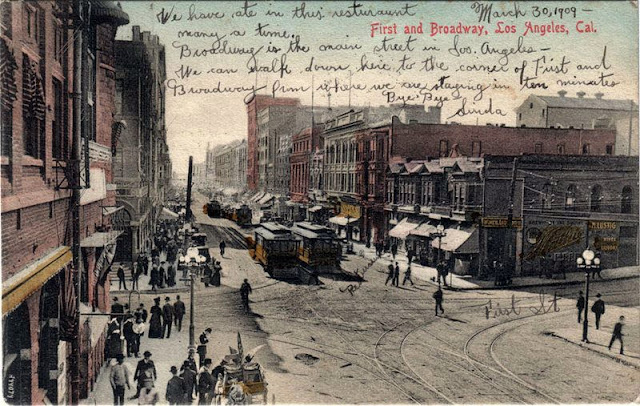 We have ate in this resteraunt March 30, 1909 -
First and Broadway, Los Angeles, Cal.
many a time.
Broadway is the main street in Los. Angeles -
We can walk down here to the corner of First and
Broadway from where we are staying in ten minates
Bye-Bye
Linda
First St